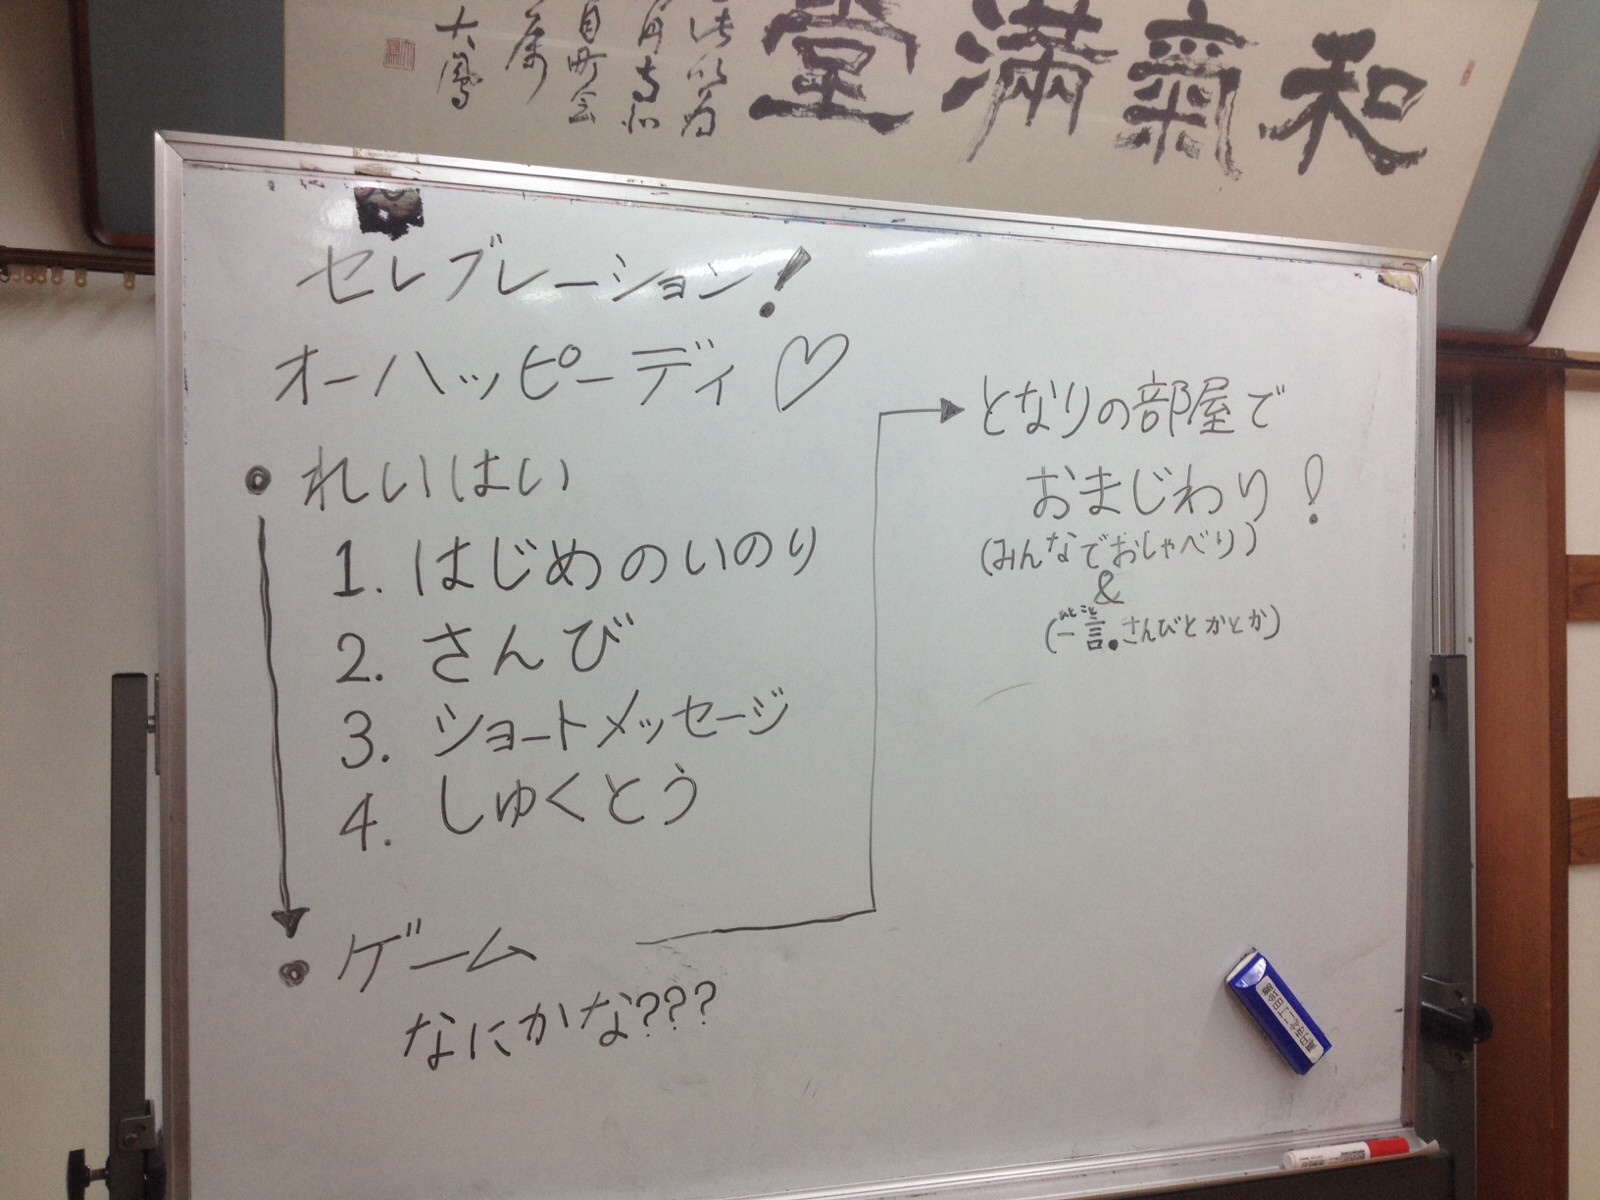 和氣滿堂
大鳳
セレブレーション!
オーハッピーディ♡
• れいはい
1. はじめのいのり
2. さんび
3. ショートメッセージ
4. しゅくとう
• ゲーム
なにかな???
となりの部屋で
おまじわり!
(みんなでおしゃべり)
&
ひとこと
(一言。さんびとかとか)